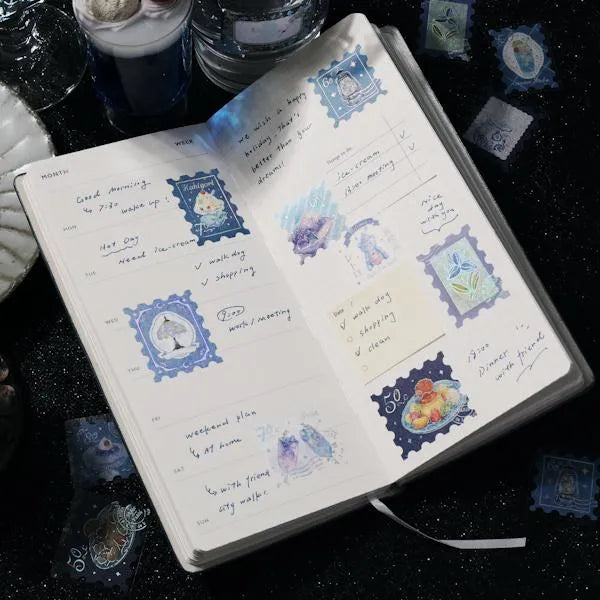 MONTH
WEEK
Good Morning
↳ 7:30 wake up !
MON
Kakigori
Hot Day
Need ice-cream
TUE
✓ walk dog
✓ shopping
WED
9:00
work / meeting
THU
FRI
weekend plan
↳ At home
SAT
↳ with friend
city walk.
SUN
70
60
we wish a happy
holiday. That's
better than your
dreams!
ice-cream ✓
13:30 meeting ✓
Nice
day
with you
✓ walk dog
shopping
✓ clean
50
19:00
Dinner
with friend
50